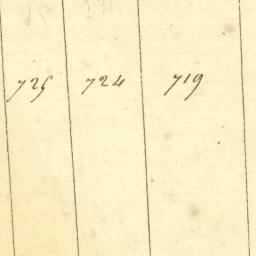 725 724 719